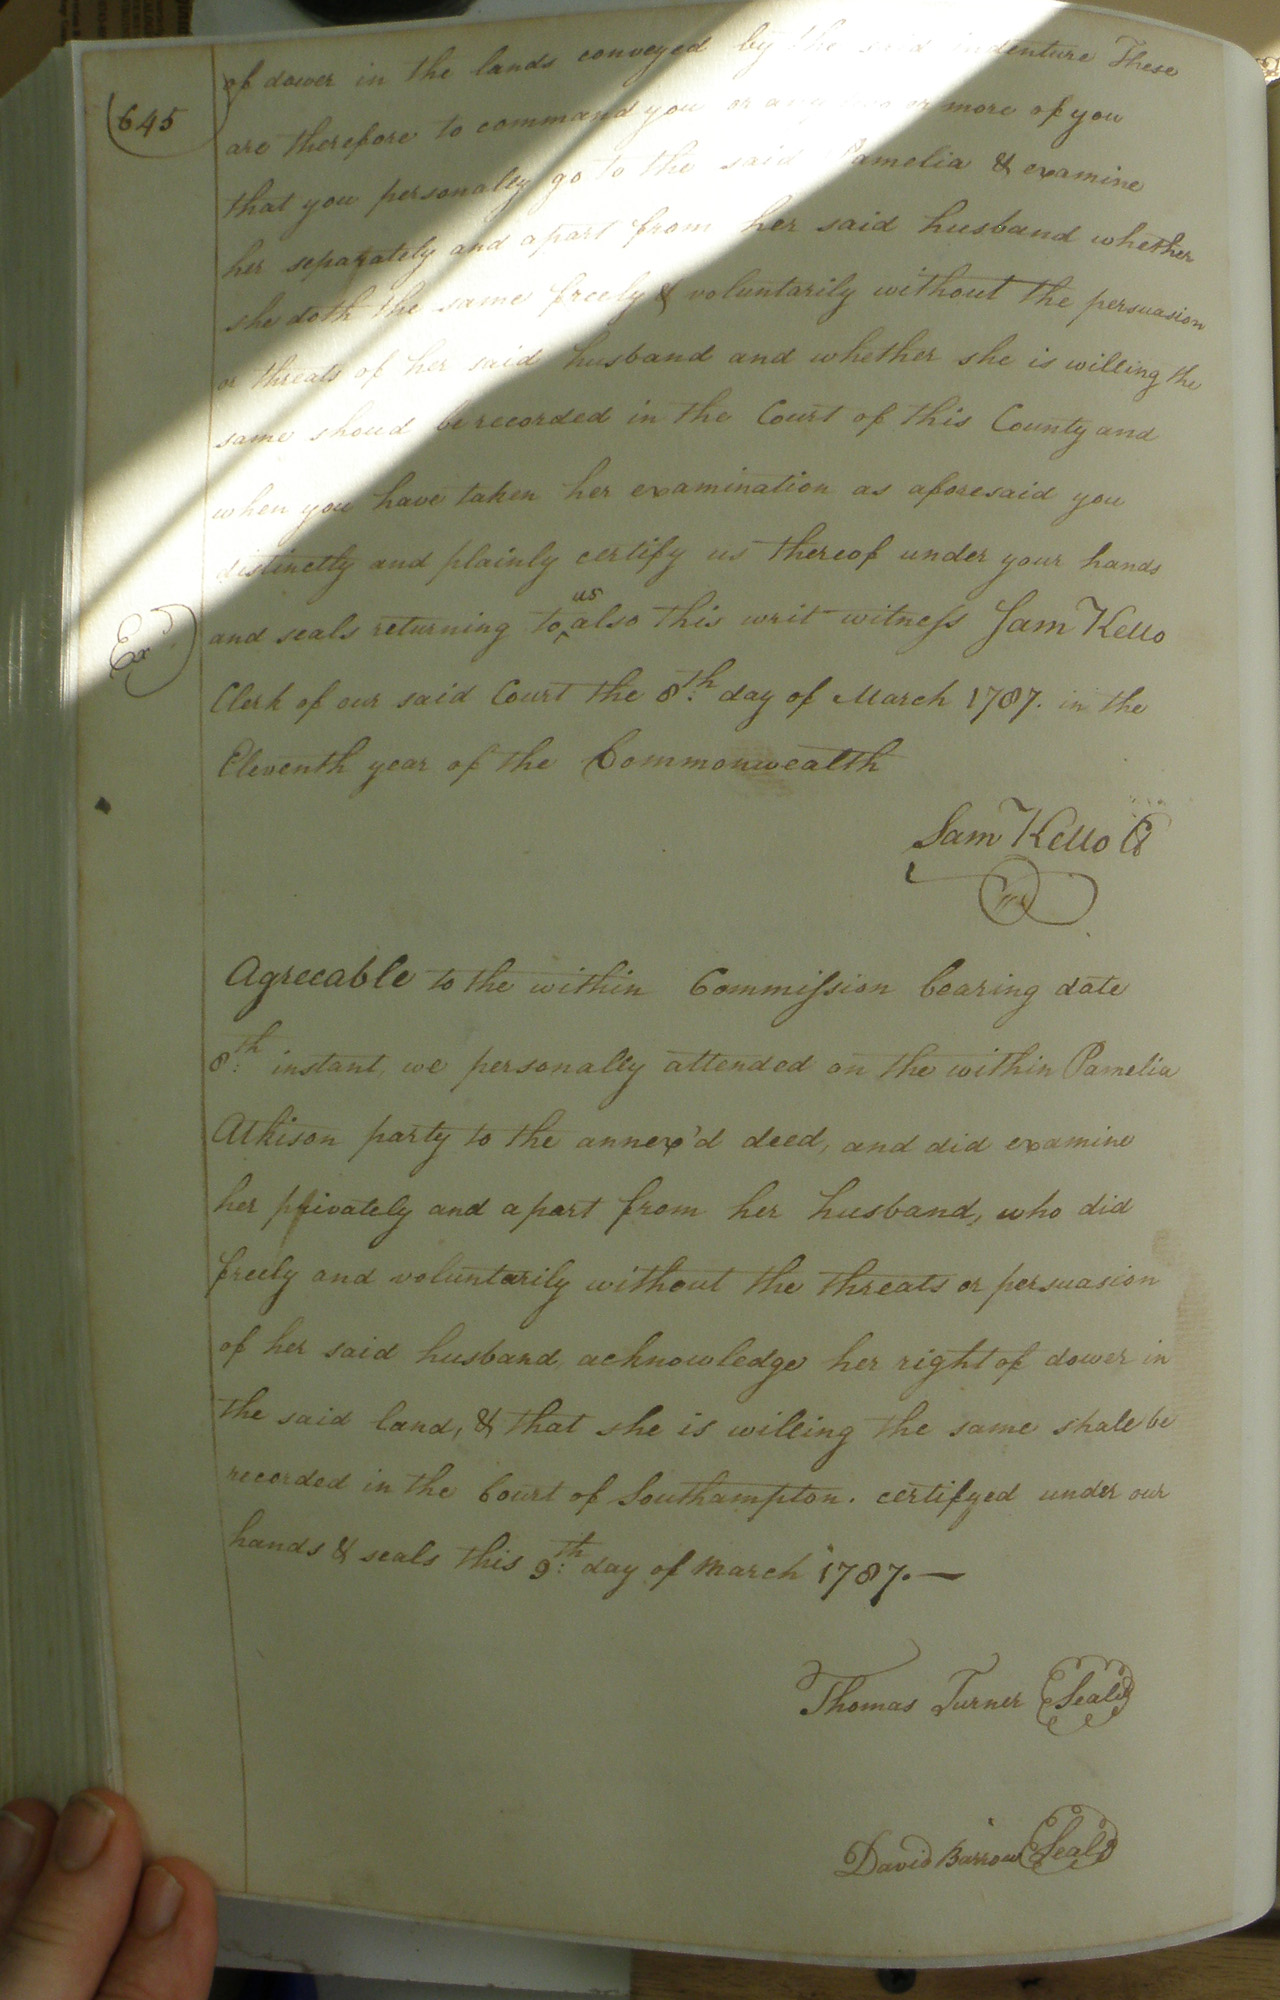 645
of dower in the lands conveyed by the said indenture These
are therefore to command you or any two or more of you
that you personally go to the said Pamelia & examine
her separately and apart from her said husband whether
she doth the same freely & voluntarily without the persuasion
or threats of her said husband and whether she is willing the
same shoud be recorded in the Court of this County and
when you have taken her examination as aforesaid you
distinctly and plainly certify us thereof under your hands
and seals returning to us also this writ witness Sam Kello
Ex
Clerk of our said Court the 8th day of March 1787. in the
Eleventh year of the Commonwealth
Sam Kello
Agreeable to the within Commission bearing date
8th instant, we personally attended on the within Pamelia
Atkison party to the annex'd deed, and did examine
her privately and apart from her husband, who did
freely and voluntarily without the threats or persuasion
of her said husband, acknowledge her right of dower in
the said land, & that she is willing the same shall be
recorded in the Court of Southampton. certifyed under our
hands & seals this 9th day of March 1787.—
Thomas Turner Seal
David Barrow Seal